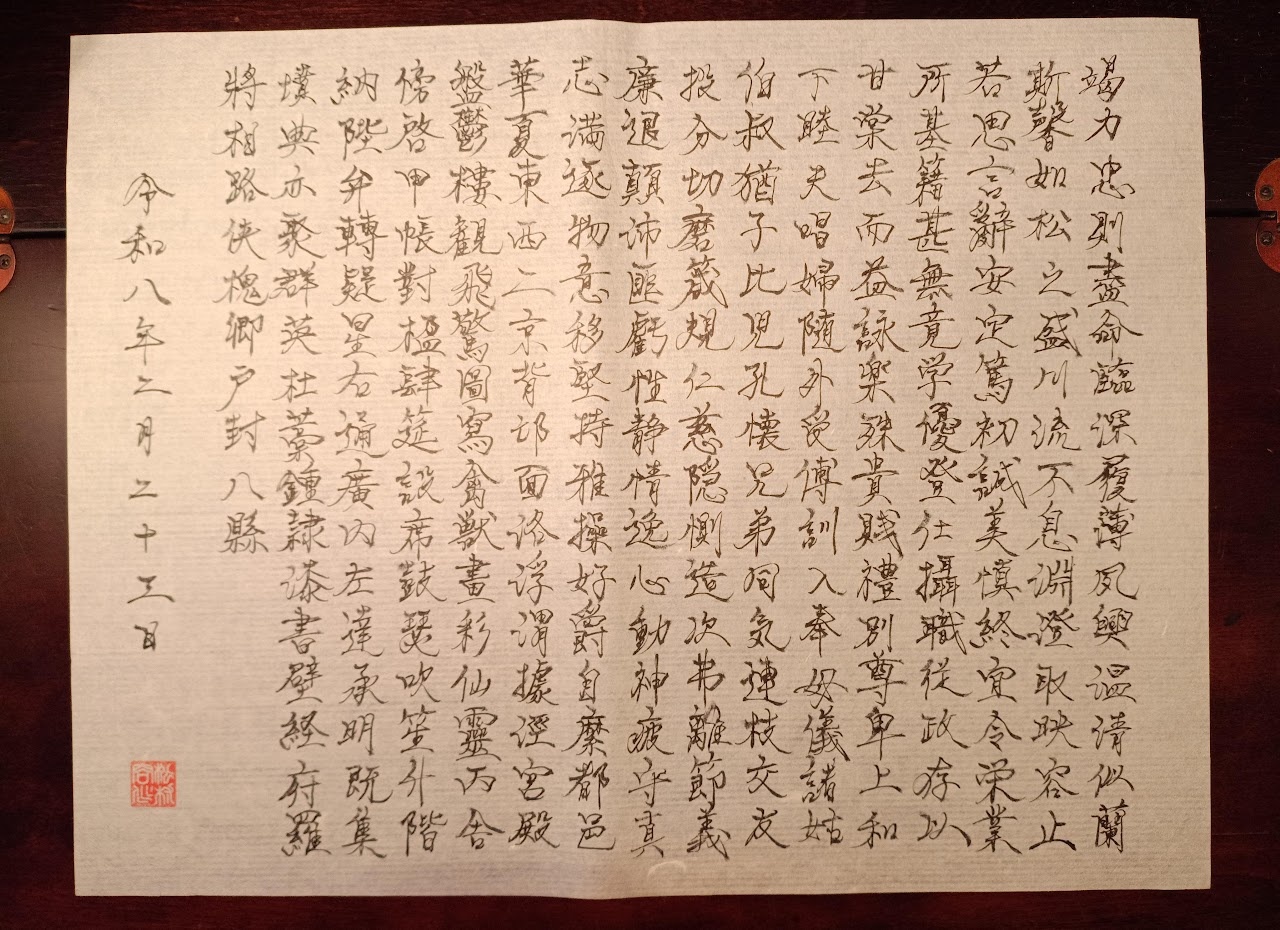 竭力忠則盡命臨深履薄夙興温清似蘭
斯馨如松之盛川流不息淵澄取映容止
若思言辭安定篤初誠美慎終宜令栄業
所基籍甚無竟学優登仕攝職従政存以
甘棠去而益詠楽殊貴賤禮別尊卑上和
下睦夫唱婦随外受傅訓入奉母儀諸姑
伯叔猶子比児孔懐兄弟同気連枝交友
投分切磨箴規仁慈隠惻造次弗離節義
廉退顛沛匪虧性静情逸心動神疲守真
志満逐物意移堅持雅操好爵自縻都邑
華夏東西二京背邙面洛浮渭據涇宮殿
盤鬱樓観飛驚圖寫禽獣畫彩仙靈丙舎
傍啓甲帳對楹肆筵設席鼓瑟吹笙升階
納陛弁轉疑星右通廣内左達承明既集
墳典亦聚群英杜藁鍾隷漆書壁経府羅
將相路侠槐卿戸封八縣
令和八年二月二十三日